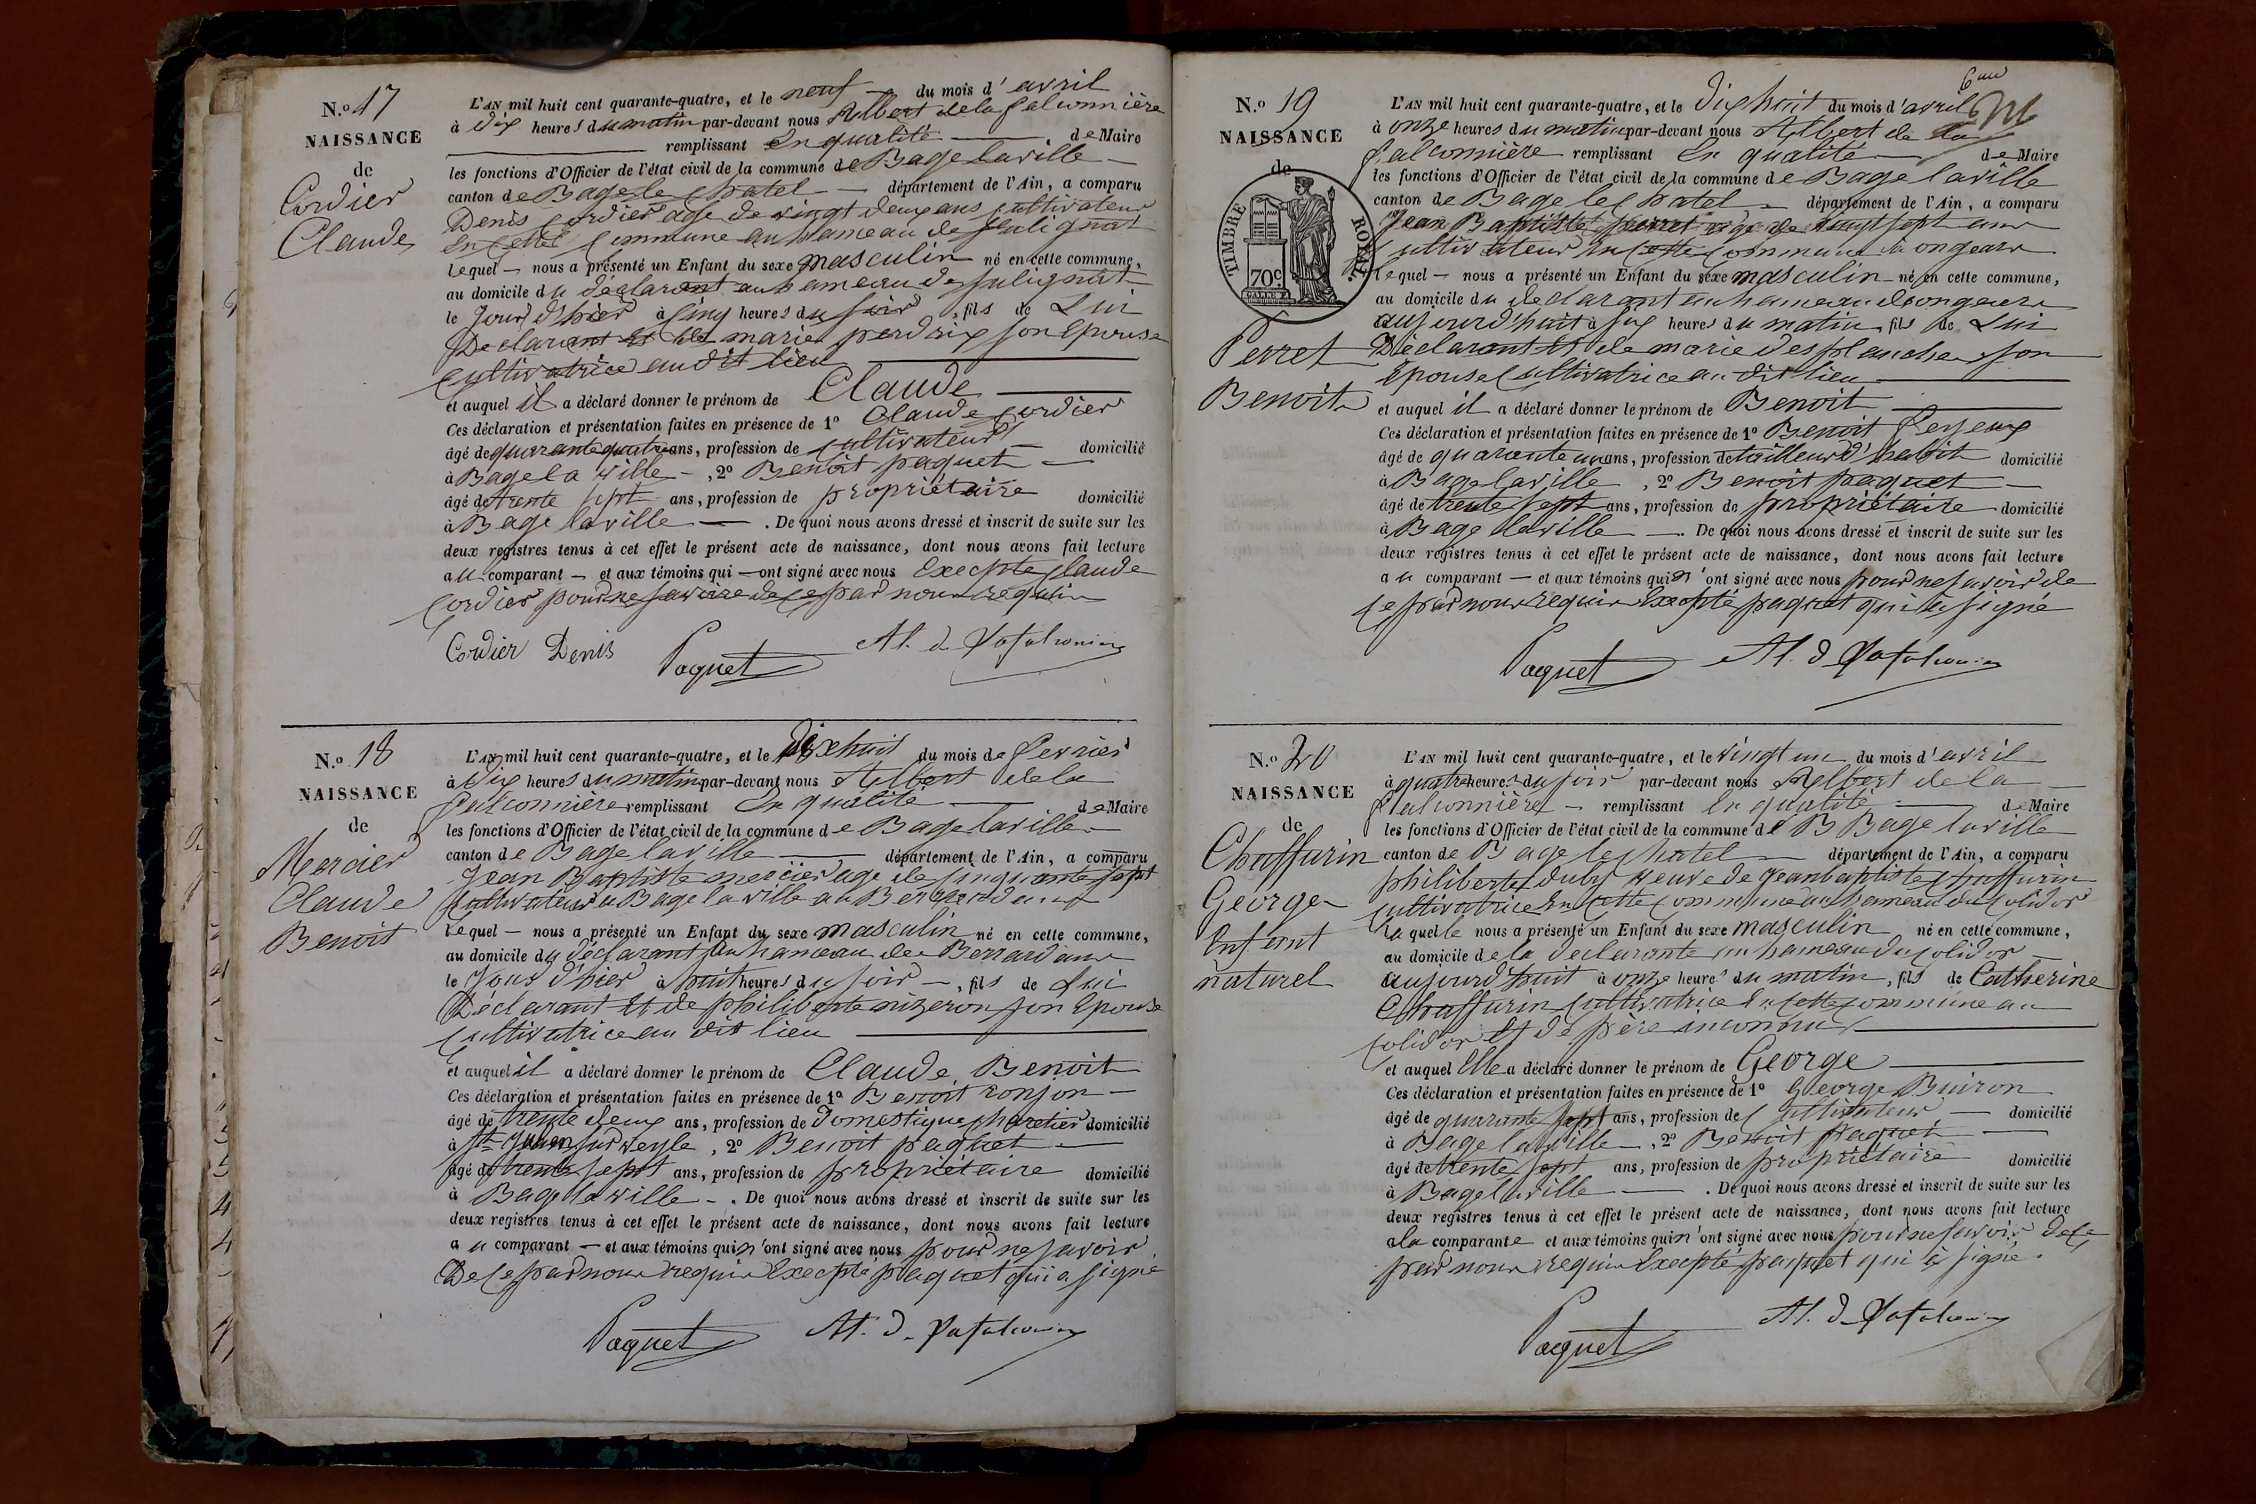 N.o 17
NAISSANCE
de
Cordier
Claude
L'AN mil huit cent quarante-quatre, et le neuf du mois d'avril
à dix heures du matin par-devant nous Albert de la falconnière
remplissant en qualité de Maire
les fonctions d'Officier de l'état civil de la commune de Bage la ville
canton de Bage le chatel département de l'Ain, a comparu
Denis Cordier age de vingt deux ans cultivateur
en cette commune au hameau de
lequel nous a présenté un Enfant du sexe masculin né en cette commune,
au domicile du déclarant au hameau de
le jour d'hier à cinq heures du soir, fils de Lui
Declarant et de marie perdrix son Epouse
cultivatrice au dit lieu
et auquel il a déclaré donner le prénom de Claude
Ces déclaration et présentation faites en présence de 1o Claude Cordier
âgé de quarante quatre ans, profession de cultivateur domicilié
à Bage la ville, 2o Benoit paquet
âgé de trente sept ans, profession de propriétaire domicilié
à Bage la ville. De quoi nous avons dressé et inscrit de suite sur les
deux registres tenus à cet effet le présent acte de naissance, dont nous avons fait lecture
au comparant et aux témoins qui ont signé avec nous Excepté Claude
Cordier pour ne savoire de ce par nous requis
Cordier Denis Paquet Al. d
N.o 18
NAISSANCE
de
Mercier
Claude
Benoit
L'AN mil huit cent quarante-quatre, et le Dixhuit du mois de fevrier
à dix heures du matin par-devant nous Albert de la
falconnière remplissant en qualité de Maire
les fonctions d'Officier de l'état civil de la commune de Bage la ville
canton de Bage la ville département de l'Ain, a comparu
Jean Baptiste mercier age de cinquante sept
cultivateur a Bage la ville au
lequel nous a présenté un Enfant du sexe masculin né en cette commune,
au domicile du déclarant au hameau de
le Jour d'hier à huit heures du soir, fils de Lui
Déclarant et de philiberte nizeron son Epouse
cultivatrice au dit lieu
et auquel il a déclaré donner le prénom de Claude Benoit
Ces déclaration et présentation faites en présence de 1o Benoit ronjon
âgé de trente deux ans, profession de Domestique charetier domicilié
à St sur veyle, 2o Benoit paquet
âgé de trente sept ans, profession de propriétaire domicilié
à Bage la ville. De quoi nous avons dressé et inscrit de suite sur les
deux registres tenus à cet effet le présent acte de naissance, dont nous avons fait lecture
au comparant et aux témoins qui n'ont signé avec nous pour ne savoir
De ce par nous requis Excepté paquet qui a signé
Paquet Al. d
6me
N.o 19
NAISSANCE
de
TIMBRE ROYAL.
70c
Perret
Benoit
L'AN mil huit cent quarante-quatre, et le Dixhuit du mois d'avril
à onze heures du matin par-devant nous Albert de la
falconnière remplissant en qualité de Maire
les fonctions d'Officier de l'état civil de la commune de Bage la ville
canton de Bage le chatel département de l'Ain, a comparu
Jean Baptiste perret age de vingt sept ans
cultivateur en cette commune
lequel nous a présenté un Enfant du sexe masculin né en cette commune,
au domicile du declarant au hameau
aujourd'huit à six heures du matin, fils de Lui
Déclarant et de marie desplanches son
Epouse cultivatrice au dit lieu
et auquel il a déclaré donner le prénom de Benoit
Ces déclaration et présentation faites en présence de 1o Benoit
âgé de quarante un ans, profession de tailleur d'habit domicilié
à Bage la ville, 2o Benoit paquet
âgé de trente sept ans, profession de propriétaire domicilié
à Bage la ville. De quoi nous avons dressé et inscrit de suite sur les
deux registres tenus à cet effet le présent acte de naissance, dont nous avons fait lecture
au comparant et aux témoins qui n'ont signé avec nous pour ne savoir de
ce par nous requis Excepté paquet qui à signé
Paquet Al. d
N.o 20
NAISSANCE
de
Chaffurin
George
Enfant
naturel
L'AN mil huit cent quarante-quatre, et le vingt un du mois d'avril
à quatre heures du soir par-devant nous Albert de la
falconnière remplissant en qualité de Maire
les fonctions d'Officier de l'état civil de la commune de B Bage la ville
canton de Bage le chatel département de l'Ain, a comparu
philiberte duby veuve de Jean baptiste chaffurin
cultivatrice en cette commune au hameau du Colidor
laquelle nous a présenté un Enfant du sexe masculin né en cette commune,
au domicile de la declarante au hameau du Colidor
aujourd'huit à onze heures du matin, fils de Catherine
Chaffurin cultivatrice en cette commune au
colidor et de père inconnu
et auquel Elle a déclaré donner le prénom de George
Ces déclaration et présentation faites en présence de 1o George Buiron
âgé de quarante sept ans, profession de cultivateur domicilié
à Bage la ville, 2o Benoit paquet
âgé de trente sept ans, profession de propriétaire domicilié
à Bage la ville. De quoi nous avons dressé et inscrit de suite sur les
deux registres tenus à cet effet le présent acte de naissance, dont nous avons fait lecture
a la comparante et aux témoins qui n'ont signé avec nous pour ne savoir de ce
par nous requis Excepté paquet qui à signé.
Paquet Al. d